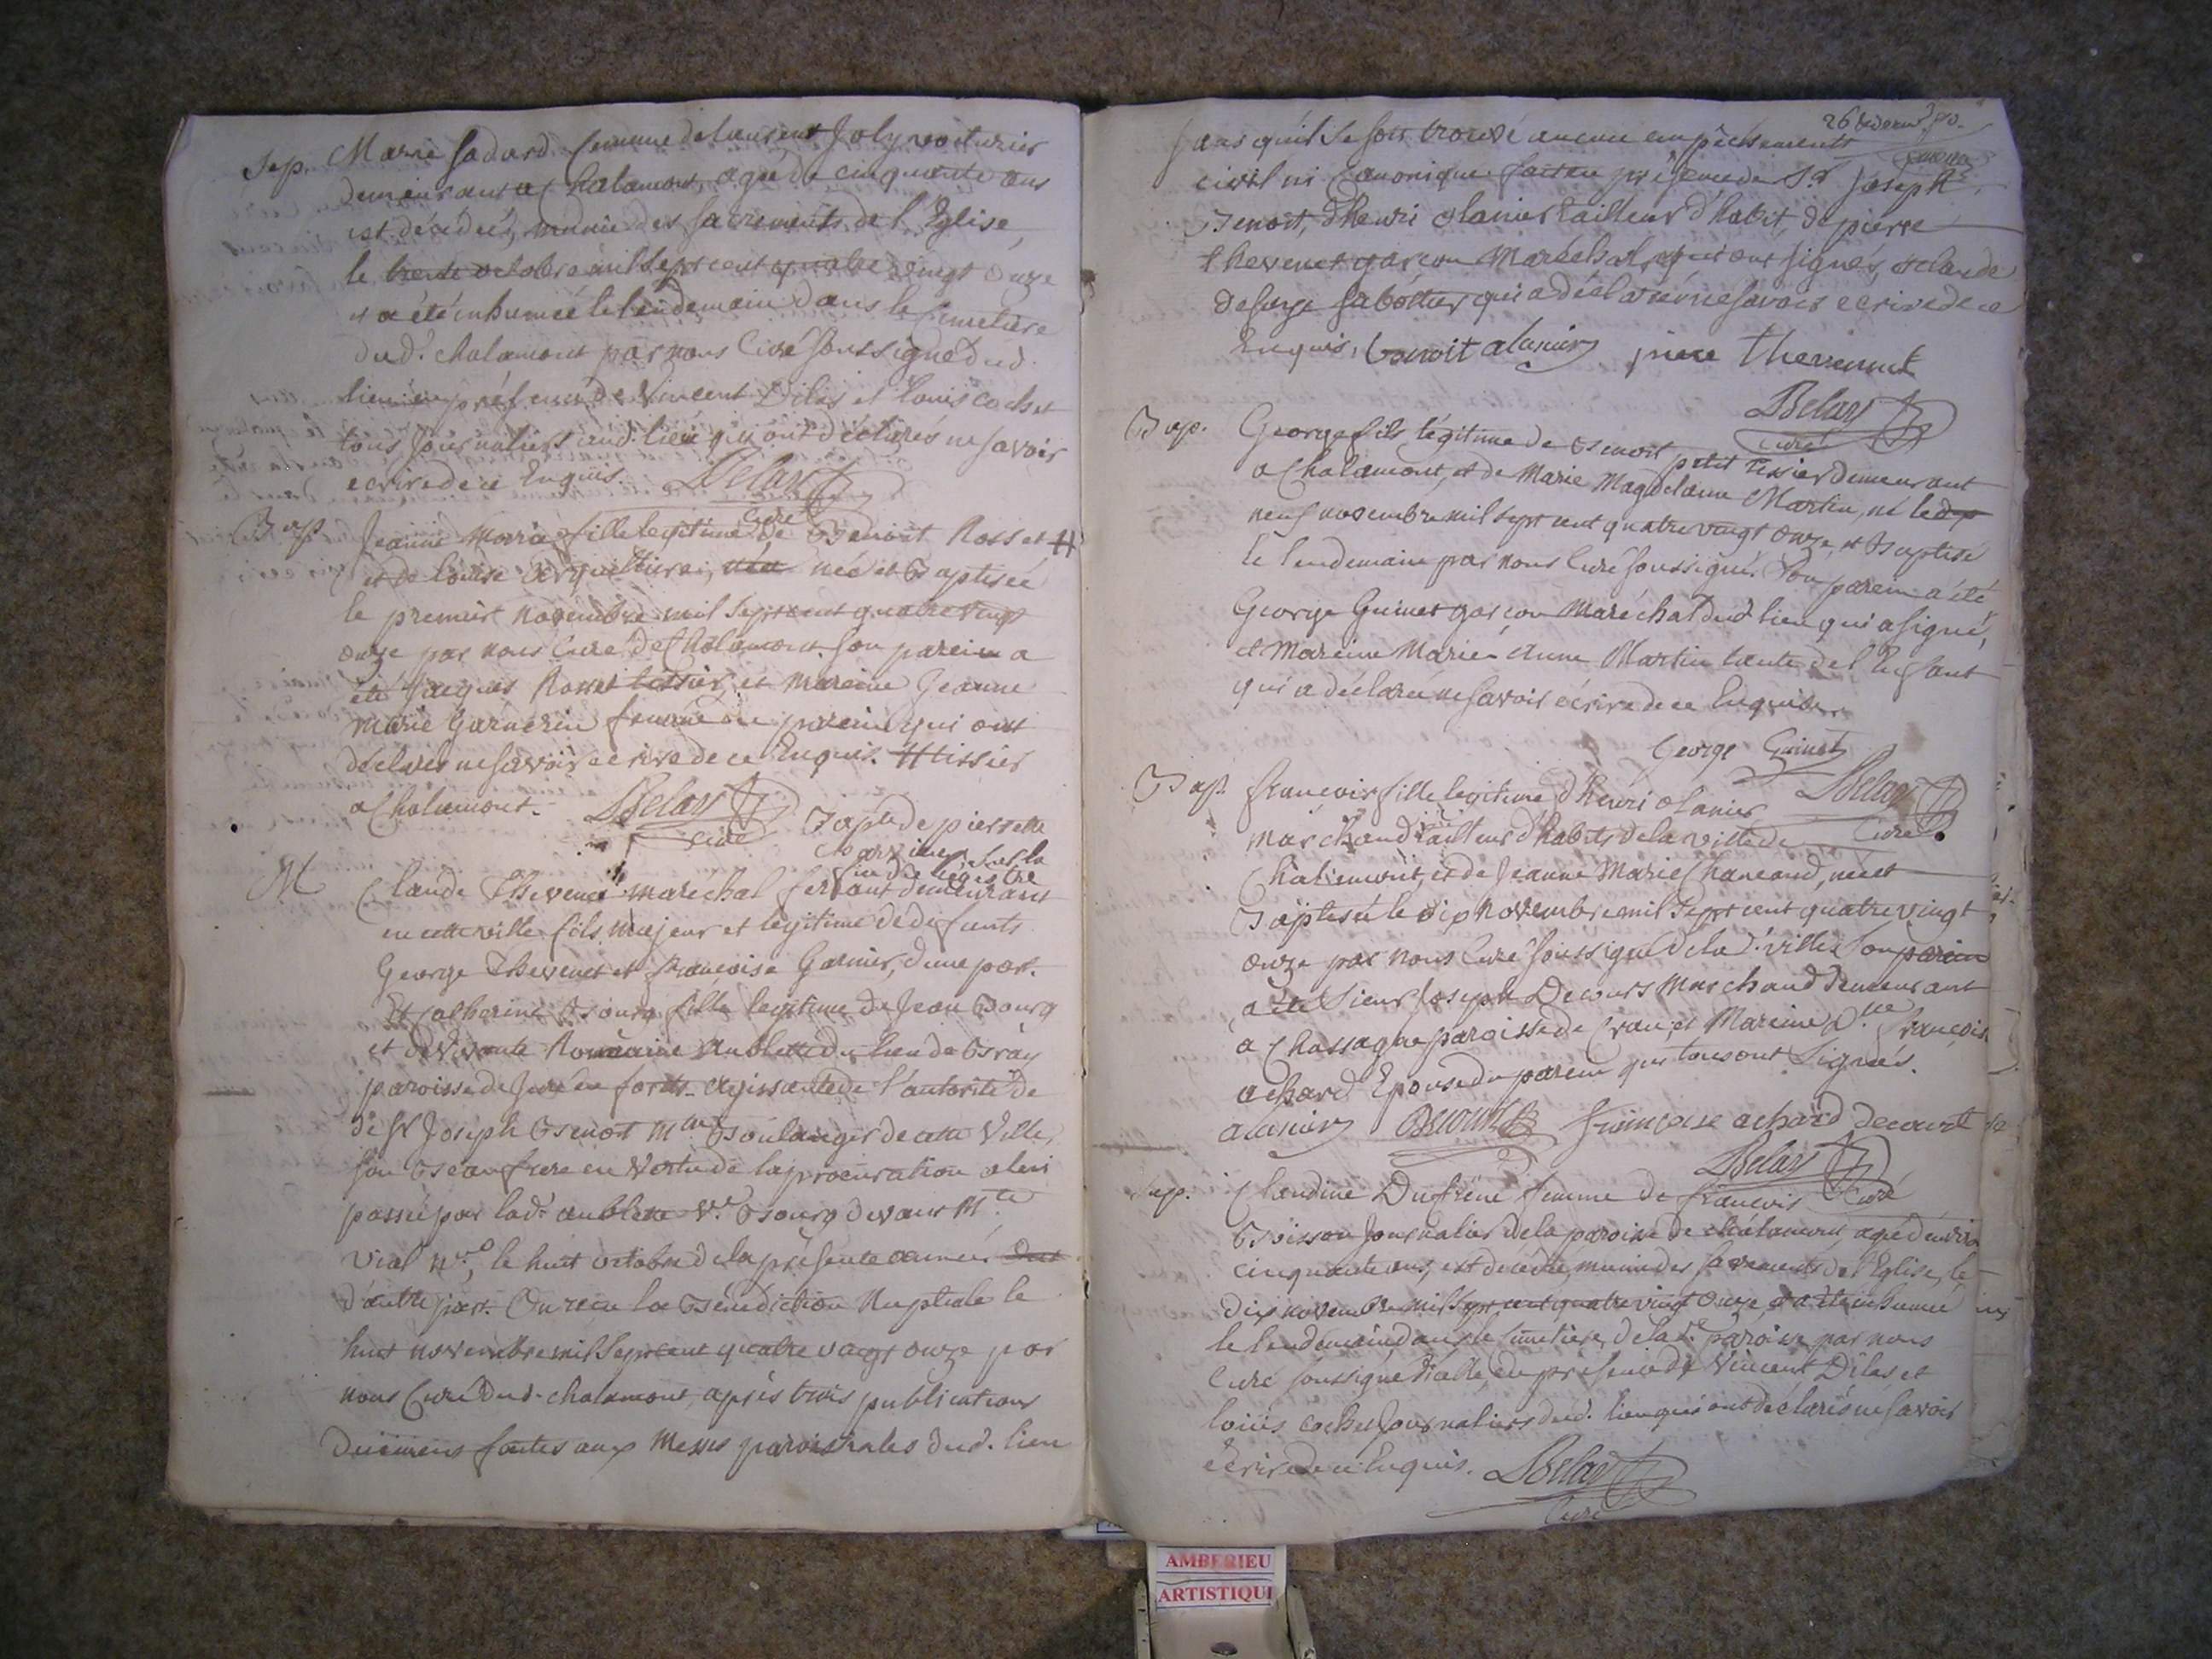 Sep. Marie Sadard femme de laurent Joly voiturier
demeurant a Chalamont, agée de cinquante ans
est décédée, munie des sacrements de l'Eglise,
le trente octobre mil sept cent quatre vingt onze
et a été inhumée le lendemain dans le Cimetière
dud. chalamont par nous Curé soussigné dud.
lieu en présence de Vincent Dilas et louis cochet
tous Journaliers aud. lieu qui ont déclarés ne savoir
ecrire de ce Enquis. Delay
curé
Bap. Jeanne Marie fille legitime de Benoit Rosset #
et de louise née et Baptisée
le premier novembre mil sept cent quatre vingt
onze par nous Curé de Chalamont. Son parein a
été Jacques Rosset tissier, et mareine Jeanne
Marie Garnerin femme du parein qui ont
déclarés ne savoir ecrire de ce Enquis. # tissier
a Chalamont. Delay
curé
Bapt. de pierrette
sur la
fin du registre
M Claude Thevenet marechal ferrant demeurant
en cette ville fils majeur et legitime de defunts
George Thevenet et françoise Garnier, d'une part.
Et Catherine Bourg fille legitime de Jean Bourg
et de vivante Romaine aublette du lieu de Bray
paroisse de Juré en forets agissante de l'autorité de
de Sr Joseph Benoit Md Boulanger de cette Ville,
son Beaufrere en Vertu de la procuration a lui
passée par lad. aublette Ve. Bourg devant Me
Vial nre, le huit octobre de la présente année
d'autre part. On reçu la Bénédiction Nuptiale le
huit novembre mil sept cent quatre vingt onze par
nous Curé dud. chalamont, après trois publications
duement faites aux Messes paroissiales dud. lieu
26
sans qu'il se soit trouvé aucune empêchements
civil ni Canonique fait en présence de Sr Joseph
Benoit, d'henri alanier tailleur d'habit, de pierre
thevenet garçon Maréchal, qui ont signés, et claude
deserge sabottier qui a déclaré ne savoir ecrire de ce
Enquis, benoit alanier piere thevenent
Delay
Curé
Bap. George fils légitime de Benoit petit Tissier demeurant
a Chalamont, et de Marie Magdelaine Martin, né le
neuf novembre mil sept cent quatre vingt onze, et Baptisé
le lendemain par nous Curé soussigné. Son parein a été
George Guinet garçon Maréchal dud. lieu qui a signé,
et Mareine Marie Anne Martin tante de l'Enfant
qui a déclaré ne savoir écrire de ce Enquise.
George Guinet
Delay
Curé
Bap. françoise fille legitime d'henri alanier
Marchand tailleur d'habits de la ville de
Chalamont, et de Jeanne Marie Chaneaud, née et
Baptisée le dix novembre mil sept cent quatre vingt
onze par nous Curé soussigné de lad. ville. Son parein
a été Sieur Joseph Decourt Marchand demeurant
a Chassagne paroisse de Cran, et Mareine Dlle françoise
achard Epouse du parein qui tous ont Signés.
alanier Decourt françoise achard decourt
Delay
Curé
Sep. Claudine Dufrêne femme de françois
Boisson Journalier de la paroisse de chalamont, agée d'environ
cinquante ans, est decédée, munie des sacrements de l'Eglise, le
dix novembre mil sept cent quatre vingt onze, et a été inhumée
le lendemain dans le cimetière de lad. paroisse par nous
Curé soussigné en présence de Vincent Dilas et
louis cochet Journaliers dud. lieu qui ont déclarés ne savoir
écrire de ce Enquis. Delay
Curé
AMBERIEU
ARTISTIQUE